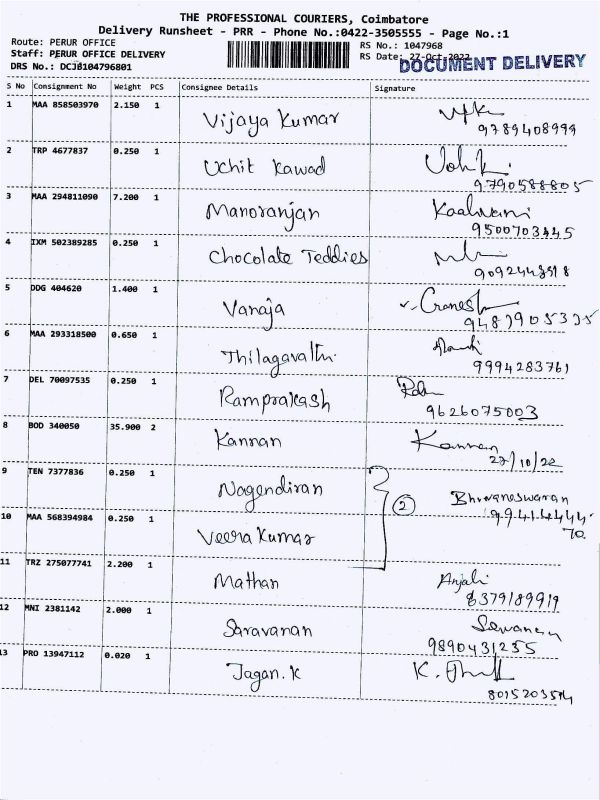 THE PROFESSIONAL COURIERS, Coimbatore
Delivery Runsheet - PRR - Phone No.:0422-3505555 - Page No.:1
Route: PERUR OFFICE
RS No.: 1047968
Staff: PERUR OFFICE DELIVERY
RS Date: 27-Oct-2022
DOCUMENT DELIVERY
DRS No.: DCJB104796801
S No Consignment No Weight PCS Consignee Details Signature
1 MAA 858503970 2.150 1 Vijaya Kumar
9789408999
2 TRP 4677837 0.250 1 Uchit Kawad
9790588805
3 MAA 294811090 7.200 1 Manoranjan
9500703445
4 IXM 502389285 0.250 1 Chocolate Teddies
9092448518
5 DDG 404620 1.400 1 Vanaja
6 MAA 293318500 0.650 1 Thilagavathi
9994283761
7 DEL 70097535 0.250 1 Ramprakash
9626075003
8 BOD 340050 35.900 2 Kannan Kannan
27/10/22
9 TEN 7377836 0.250 1 Nagendiran
2 Bhuvaneswaran
99414444
70
10 MAA 568394984 0.250 1 Veera Kumar
11 TRZ 275077741 2.200 1 Mathan Anjali
8379189919
12 MNI 2381142 2.000 1 Saravanan
9890431255
13 PRO 13947112 0.020 1 Jagan.K